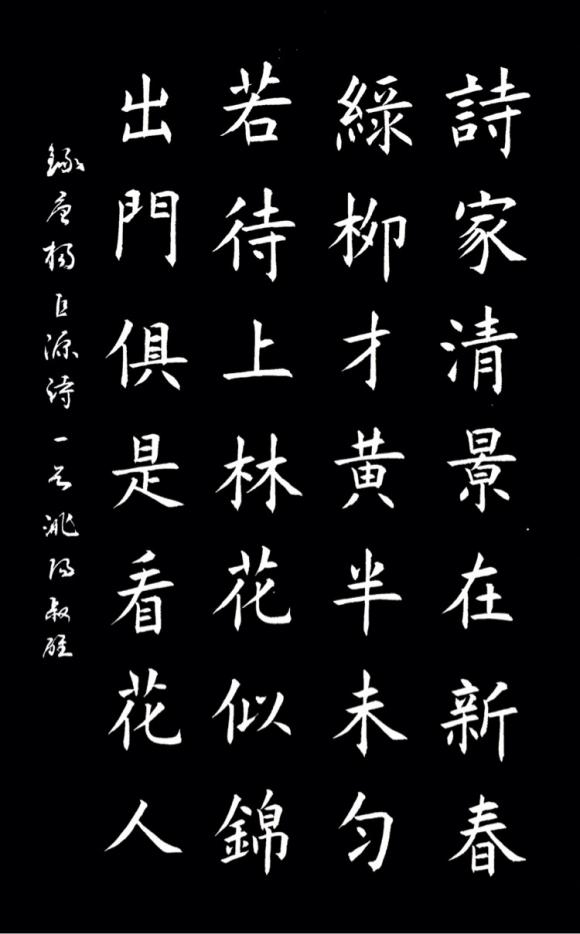 詩家清景在新春
綠柳才黃半未勻
若待上林花似錦
出門俱是看花人
錄唐楊巨源詩一首洮陽叔